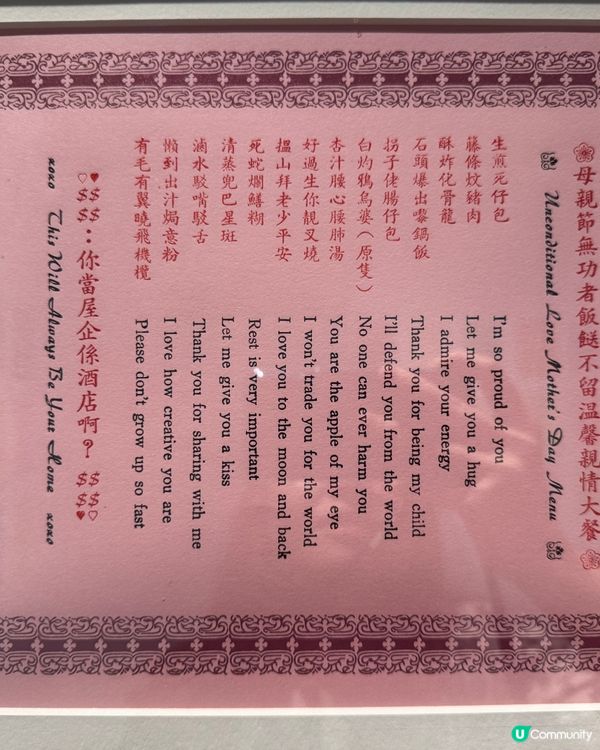 母親節無功者飯餸不留溫馨親情大餐
Unconditional Love Mother's Day Menu
生煎死仔包 I'm so proud of you
藤條炆豬肉 Let me give you a hug
酥炸化骨龍 I admire your energy
石頭爆出嚟鍋飯 Thank you for being my child
拐子佬腸仔包 I'll defend you from the world
白灼鴉烏婆（原隻） No one can ever harm you
杏汁腰心腰肺湯 You are the apple of my eye
好過生你靚叉燒 I won't trade you for the world
搵山拜老少平安 I love you to the moon and back
死蛇爛鱔糊 Rest is very important
清蒸兜巴星斑 Let me give you a kiss
滷水駁嘴駁舌 Thank you for sharing with me
懶到出汁焗意粉 I love how creative you are
有毛有翼曉飛機欖 Please don't grow up so fast
♥$$ ♡$$：你當屋企係酒店啊？ $$♡ $$♥
xoxo This Will Always Be Your Home xoxo
U Community